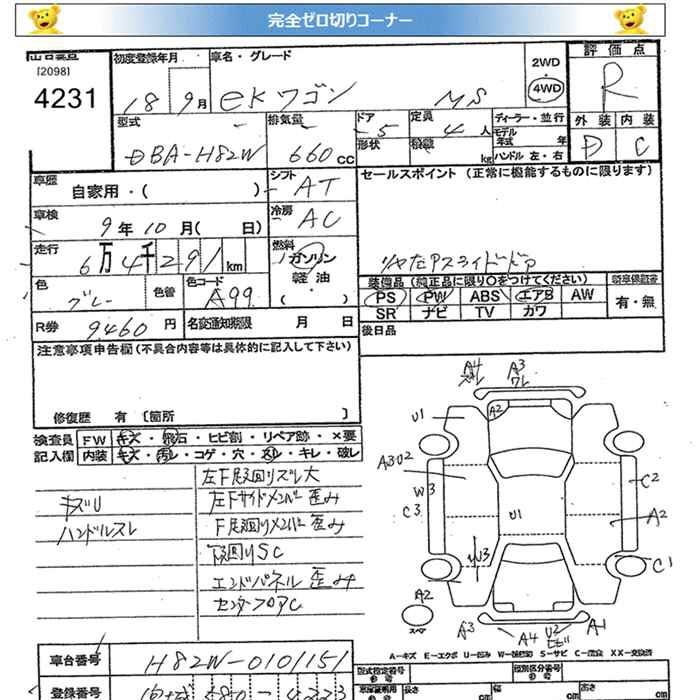 完全ゼロ切りコーナー
[2098]
4231
初度登録年月
18 9月
車名・グレード
eKワゴン MS
2WD
4WD
評価点
R
型式
DBA-H82W
排気量
660 CC
ドア
5
形状
定員
4 人
積載
kg
ディーラー・並行
モデル年式 年
ハンドル 左・右
外装 内装
D C
車歴
自家用・( )
シフト
AT
セールスポイント (正常に機能するものに限ります)
車検
9年10月( 日)
冷房
AC
走行
6万4千291km
燃料
ガソリン
軽油
・( )
リヤ左Pスライドドア
色
グレー
色替
色コード
A99
装備品(純正品に限り○をつけてください)
PS PW ABS エアB AW
SR ナビ TV カワ
新車保証書
有・無
R券 9460円
名変通知期限 月 日
後日品
注意事項申告欄(不具合内容等は具体的に記入して下さい)
修復歴 有 [箇所 ]
検査員記入欄
FW キズ・飛石・ヒビ割・リペア跡・×要
内装 キズ・汚レ・コゲ・穴・スレ・キレ・破レ
キズU
ハンドルスレ
左F足廻リズレ大
左Fサイドメンバー歪み
F足廻リメンバー歪み
下廻りSC
エンドパネル歪み
センターフロアC
A4
A3
ワレ
A2
U1
A3U2
W3
C3
U1
C2
A2
W3
C1
A2
スペア
A3
A4
U2
ヒビ
A1
A-キズ E-エクボ U-凹み W-補修跡 S-サビ C-腐食 XX-交換済
車台番号
H82W-0101151
登録番号
型式指定番号
類別区分番号
長さ cm 幅 cm 高さ cm